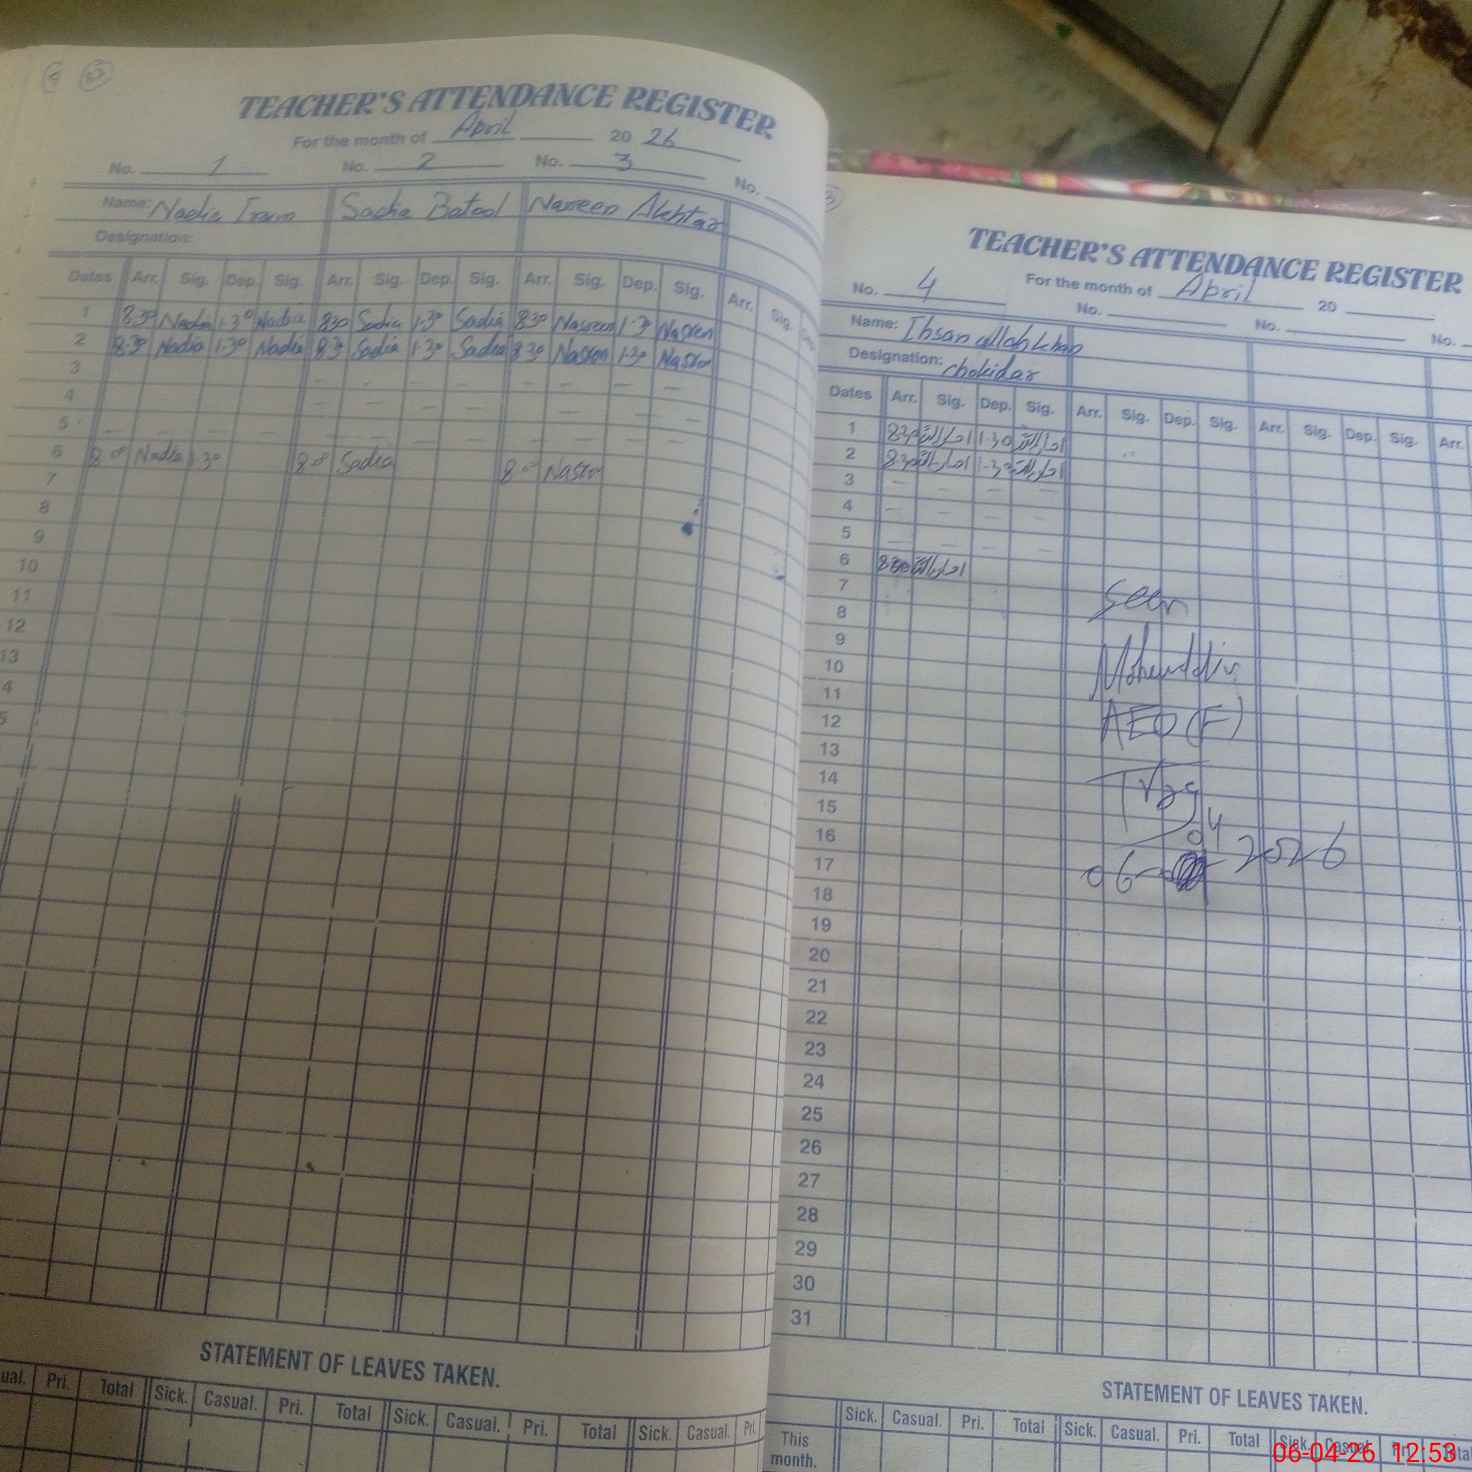 TEACHER'S ATTENDANCE REGISTER
For the month of April 20 26
No. 1 No. 2 No. 3 No.
Name: Nadia Iram Sadia Batool Nasreen Akhtar
Designation:
Dates Arr. Sig. Dep. Sig. Arr. Sig. Dep. Sig. Arr. Sig. Dep. Sig. Arr. Sig. Dep.
1 8:30 Nadia 1:30 Nadia 8:30 Sadia 1:30 Sadia 8:30 Nasreen 1:30 Nasren
2 8:30 Nadia 1:30 Nadia 8:30 Sadia 1:30 Sadia 8:30 Nasren 1:30 Nasren
3
4
5
6 8:00 Nadia 1:30 8:00 Sadia 8:00 Nasren
7
8
9
10
11
12
13
4
5
STATEMENT OF LEAVES TAKEN.
ual. Pri. Total Sick. Casual. Pri. Total Sick. Casual. Pri. Total Sick. Casual. Pri.
TEACHER'S ATTENDANCE REGISTER
For the month of April 20
No. 4 No. No. No.
Name: Ihsan ullah khan
Designation: chokidar
Dates Arr. Sig. Dep. Sig. Arr. Sig. Dep. Sig. Arr. Sig. Dep. Sig. Arr.
1 8:30 1:30
2 8:30 1:30
3
4
5
6
7
8
9
10
11
12
13
14
15
16
17
18
19
20
21
22
23
24
25
26
27
28
29
30
31
Seen
AEO (F)
04
06- -2026
STATEMENT OF LEAVES TAKEN.
Sick. Casual. Pri. Total Sick. Casual. Pri. Total Sick. Casual. Pri. Total
This month.
06-04-26 12:53